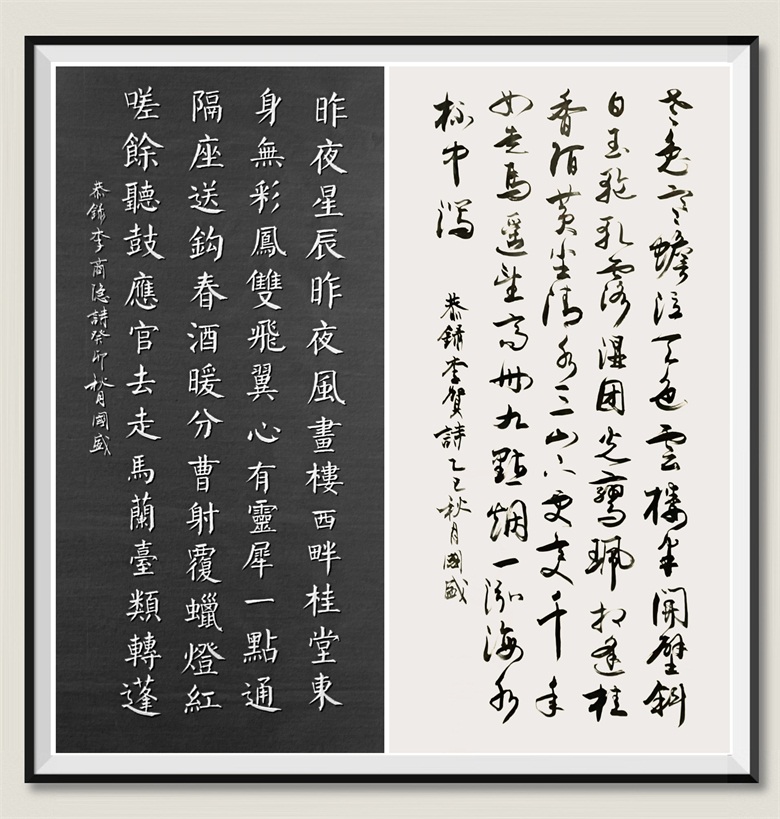 老兔寒蟾泣天色雲樓半開壁斜
白玉輪軋露湿团光鸞珮相逢桂
香陌黄尘清水三山下更变千年
如走馬遥望齊州九點烟一泓海水
杯中瀉
恭錄李賀詩乙巳秋月國盛
昨夜星辰昨夜風畫樓西畔桂堂東
身無彩鳳雙飛翼心有靈犀一點通
隔座送鈎春酒暖分曹射覆蠟燈紅
嗟餘聽鼓應官去走馬蘭臺類轉蓬
恭錄李商隱詩癸卯秋月國盛